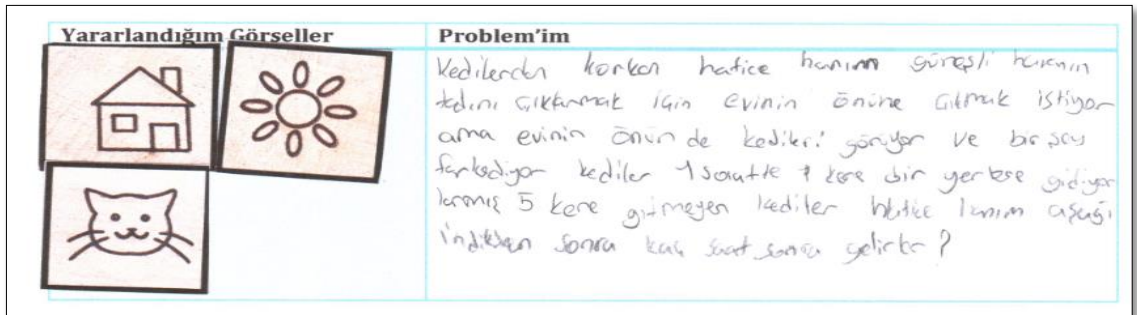 Yararlandığım Görseller
Problem'im
Kedilerden korkan hatice hanım güneşli havanın
tadını çıkarmak için evinin önüne çıkmak istiyor
ama evinin önünde kedileri görüyor ve bir şey
farkediyor kediler 1 saatte 1 kere bir yerlere gidiyor
larmış 5 kere gitmeyen kediler hatice hanım aşağı
indikten sonra kaç saat sonra gelirler?